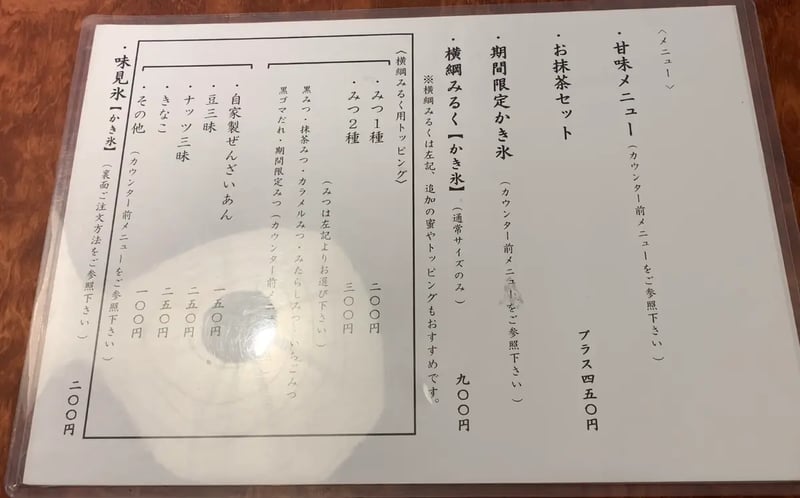 〈メニュー〉
・甘味メニュー（カウンター前メニューをご参照下さい）
・お抹茶セット プラス四五〇円
・期間限定かき氷（カウンター前メニューをご参照下さい）
・横綱みるく【かき氷】（通常サイズのみ） 九〇〇円
※横綱みるくは左記、追加の蜜やトッピングもおすすめです。
〈横綱みるく用トッピング〉
・みつ１種 二〇〇円
・みつ２種 三〇〇円
（みつは左記よりお選び下さい）
黒みつ・抹茶みつ・カラメルみつ・みたらしみつ・いちごみつ
黒ゴマだれ・期間限定みつ（カウンター前メニ
・自家製ぜんざいあん
・豆三昧 一五〇円
・ナッツ三昧 二五〇円
・きなこ 二五〇円
・その他（カウンター前メニューをご参照下さい） 一〇〇円
・味見氷【かき氷】（裏面ご注文方法をご参照下さい） 二〇〇円